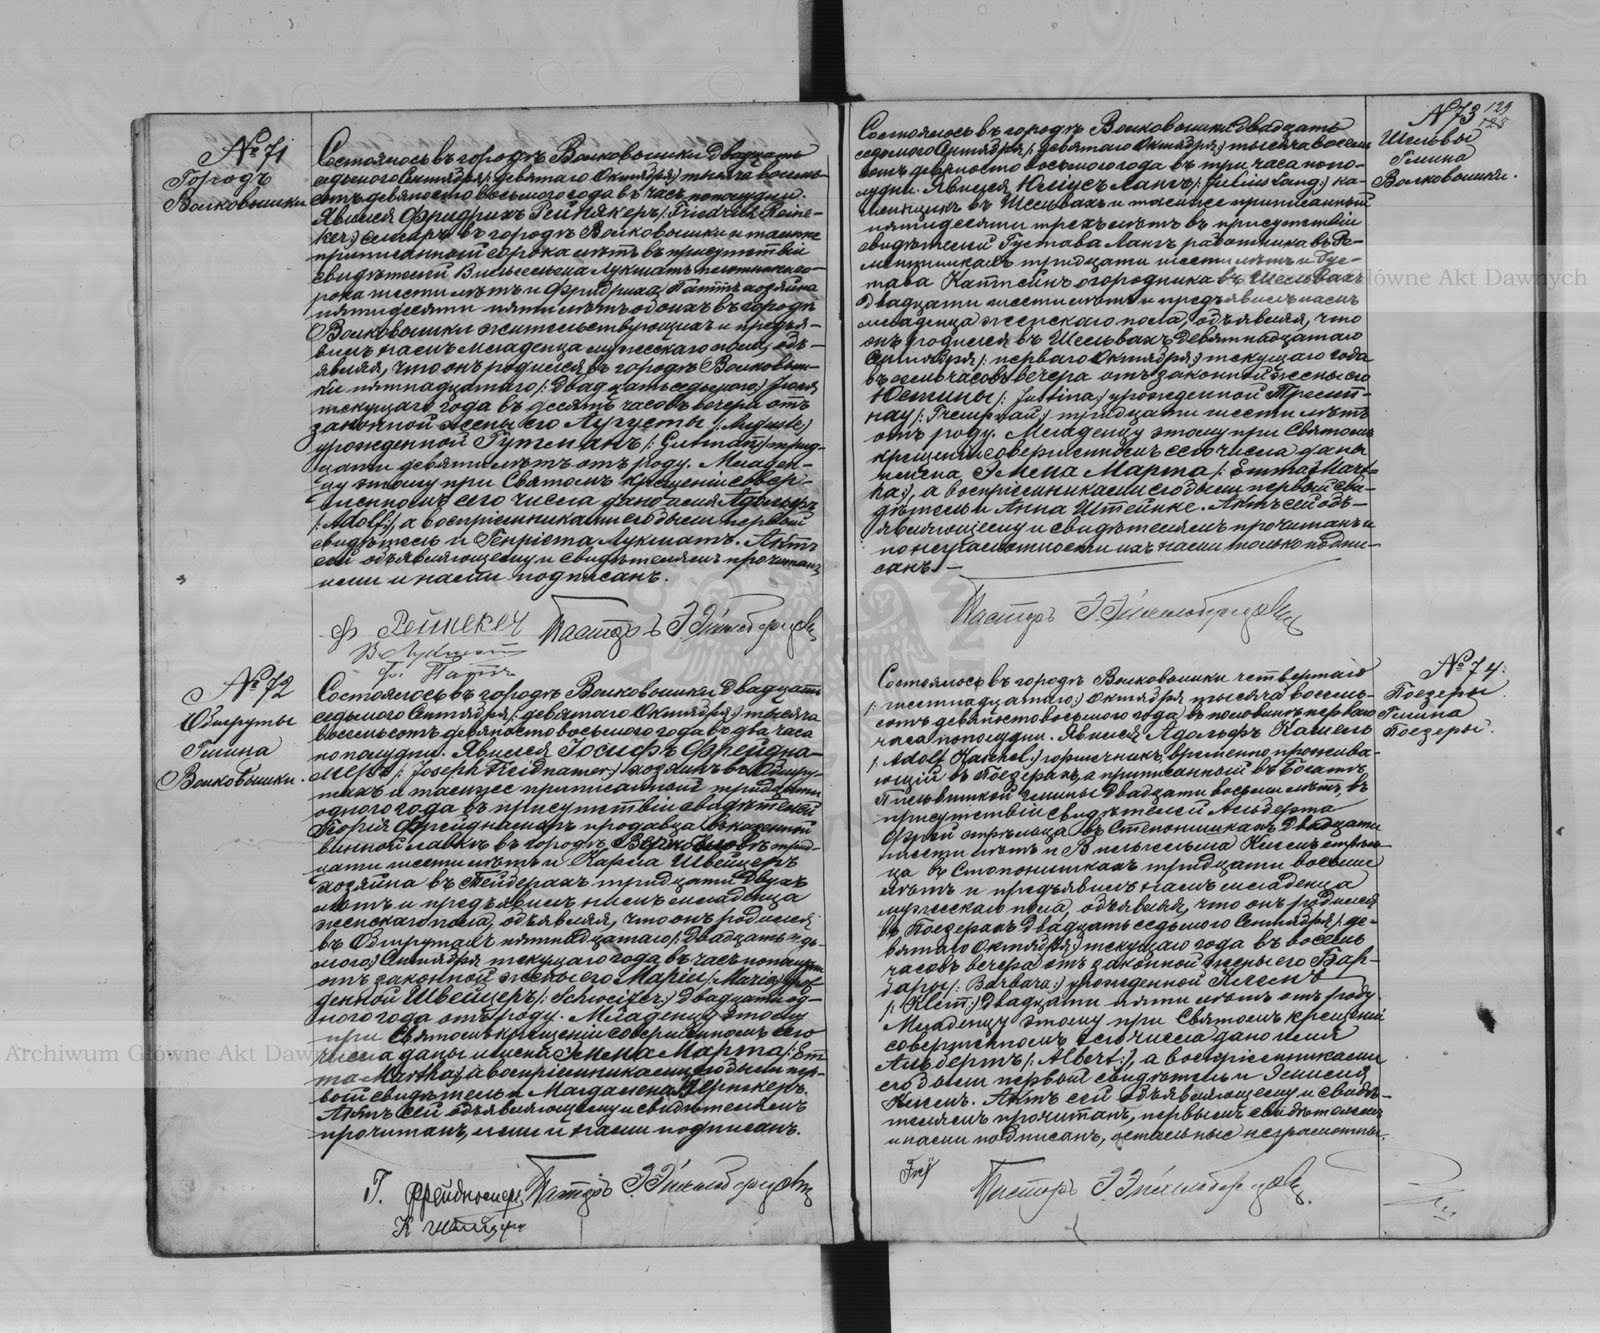 № 71
Городъ
Волковышки
Состоялось въ городѣ Волковышки двадцать
седьмого Сентября /: девятаго Октября :/ тысяча восемь-
сотъ девяносто восьмого года въ часъ пополудни.
Явился Фридрихъ Рейнекеръ /: Friedrich Reine-
ker :/ въ городѣ Волковышки и тамже
приписанный сорока лѣтъ въ присутствіи
свидѣтелей Вильгельма Лукшатъ плотника со-
рока шести лѣтъ и Фридриха Патшъ хозяина
пятидесяти пяти лѣтъ обоихъ въ городѣ
Волковышки жительствующихъ и предъя-
вилъ намъ младенца мужескаго пола, объ-
являя, что онъ родился въ городѣ Волковыш-
ки пятнадцатаго /: двадцать седьмого :/ Іюля
текущаго года въ десять часовъ вечера отъ
законной жены его Августы /: Auguste :/
урожденной Гутманъ /: Gutmann :/ трид-
цати девяти лѣтъ отъ роду. Младен-
цу этому при Святомъ крещеніи совер-
шенномъ сего числа дано имя Адольфъ
/: Adolf :/, а воспріемниками его были первый
свидѣтель и Генріета Лукшатъ. Актъ
сей объявляющему и свидѣтелямъ прочитанъ
ими и нами подписанъ.
Ф Рейнекеч
В Лукшат
Ф. Патшъ
Пасторъ
№ 72
Обшруты
Гмина
Волковышки.
Состоялось въ городѣ Волковышки двадцать
седьмого Сентября /: девятаго Октября :/ тысяча
восемьсотъ девяносто восьмого года въ два часа
пополудни. Явился Іосифъ Фрейдна-
меръ /: Joseph Freidnamer :/ хозяинъ въ Обшру-
тахъ и тамже приписанный тридцати
одного года въ присутствіи свидѣтелей
Георгія Фрейднамеръ продавца въ казенной
винной лавкѣ въ городѣ трид-
цати шести лѣтъ и Карла Швейцеръ
хозяина въ Тейберахъ тридцати двухъ
лѣтъ и предъявилъ намъ младенца
женскаго пола, объявляя, что онъ родился
въ Обшрутахъ пятнадцатаго /: двадцать седь-
мого :/ Сентября текущаго года въ часъ пополудни
отъ законной жены его Маріи /: Marie :/ урож-
денной Швейцеръ /: Schweitzer :/ двадцати од-
ного года отъ роду. Младенцу этому
при Святомъ крещеніи совершенномъ сего
числа даны имена Эмма Марта /: Em-
ma Martha :/, а воспріемниками его были пер-
вый свидѣтель и Магдалена.
Актъ сей объявляющему и свидѣтелямъ
прочитанъ, ими и нами подписанъ.
Г. Фрейднамеръ
К Швейцеръ
Пасторъ
№ 73
129
Шельвы
Гмина
Волковышки.
Состоялось въ городѣ Волковышки двадцать
седьмого Сентября /: девятаго Октября :/ тысяча восемь
сотъ девяносто восьмого года въ три часа попо-
лудни. Явился Юліусъ Лангъ /: Julius Lang :/ ка-
менщикъ въ Шельвахъ и тамже приписанный
пятидесяти трехъ лѣтъ въ присутствіи
свидѣтелей Густава Лангъ работника въ
тридцати шести лѣтъ и Гус-
тава огородника въ Шельвахъ
двадцати шести лѣтъ и предъявилъ намъ
младенца женскаго пола, объявляя, что
онъ родился въ Шельвахъ девятнадцатаго
Сентября /: перваго Октября :/ текущаго года
въ семь часовъ вечера отъ законной жены его
Юстины /: Justina :/ урожденной
тридцати шести лѣтъ
отъ роду. Младенцу этому при Святомъ
крещеніи совершенномъ сего числа даны
имена Эмма Марта /: Emma Mart-
ha :/, а воспріемниками его были первый сви-
дѣтель и Анна Штейнке. Актъ сей объ-
являющему и свидѣтелямъ прочитанъ и
по неграмотности ихъ нами только подпи-
санъ. —
Пасторъ
№ 74.
Поезеры
Гмина
Поезеры.
Состоялось въ городѣ Волковышки четвертаго
/: шестнадцатаго :/ Октября тысяча восемь-
сотъ девяносто восьмого года въ половинѣ перваго
часа пополудни. Явился Адольфъ Кашель
/: Adolf Kaschel :/ горшечникъ, временно прожива-
ющій въ Поезерахъ, а приписанный въ
гмины двадцати восьми лѣтъ, въ
присутствіи свидѣтелей Альберта
Фрей стрѣльца въ Степонишкахъ двадцати
шести лѣтъ и Вильгельма Клемъ стрѣль-
ца въ Степонишкахъ тридцати восьми
лѣтъ и предъявилъ намъ младенца
мужескаго пола, объявляя, что онъ родился
въ Поезерахъ двадцать седьмого Сентября /: де-
вятаго Октября :/ текущаго года въ восемь
часовъ вечера отъ законной жены его Бар-
бары /: Barbara :/ урожденной Клемъ
/: Klem :/ двадцати пяти лѣтъ отъ роду.
Младенцу этому при Святомъ крещеніи
совершенномъ сего числа дано имя
Альбертъ /: Albert :/, а воспріемниками
его были первый свидѣтель и Эмилія
Клемъ. Актъ сей объявляющему и свидѣ-
телямъ прочитанъ, первымъ свидѣтелемъ
и нами подписанъ, остальные неграмотны.
Пасторъ
Archiwum Główne Akt Dawnych
Główne Akt Dawnych